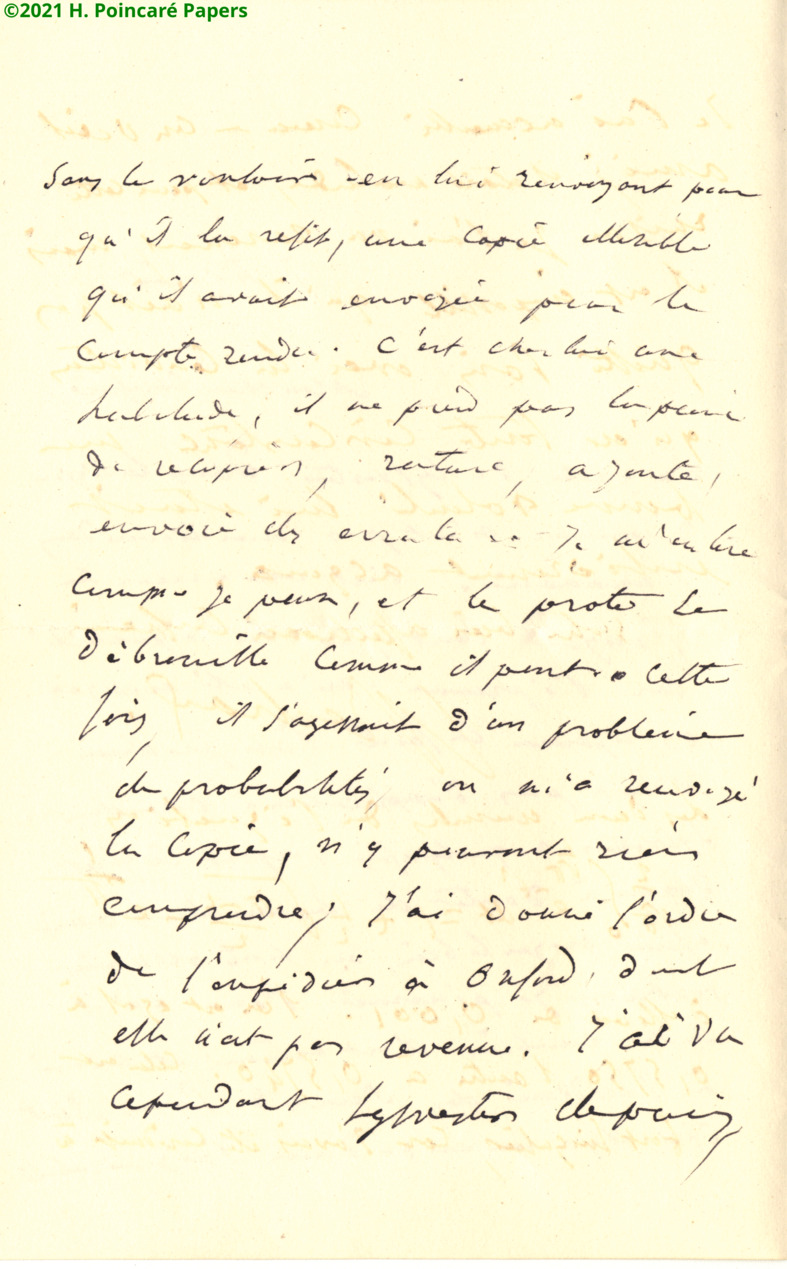 ©2021 H. Poincaré Papers
sans le vouloir en lui renvoyant pour
qu'il la refit, une copie illisible
qu'il avait envoyée pour le
Compte rendu. C'est chez lui une
habitude, il ne prend pas la peine
de recopier, rature, ajoute,
envoie des errata Je m'en tire
comme je peux, et le prote se
débrouille comme il peut. Cette
fois, il s'agissait d'un problème
de probabilités, on m'a renvoyé
la copie, n'y pouvant rien
comprendre; J'ai donné l'ordre
de l'expédier à Oxford, d'où
elle n'est pas revenue. J'ai vu
cependant Sylvester depuis,